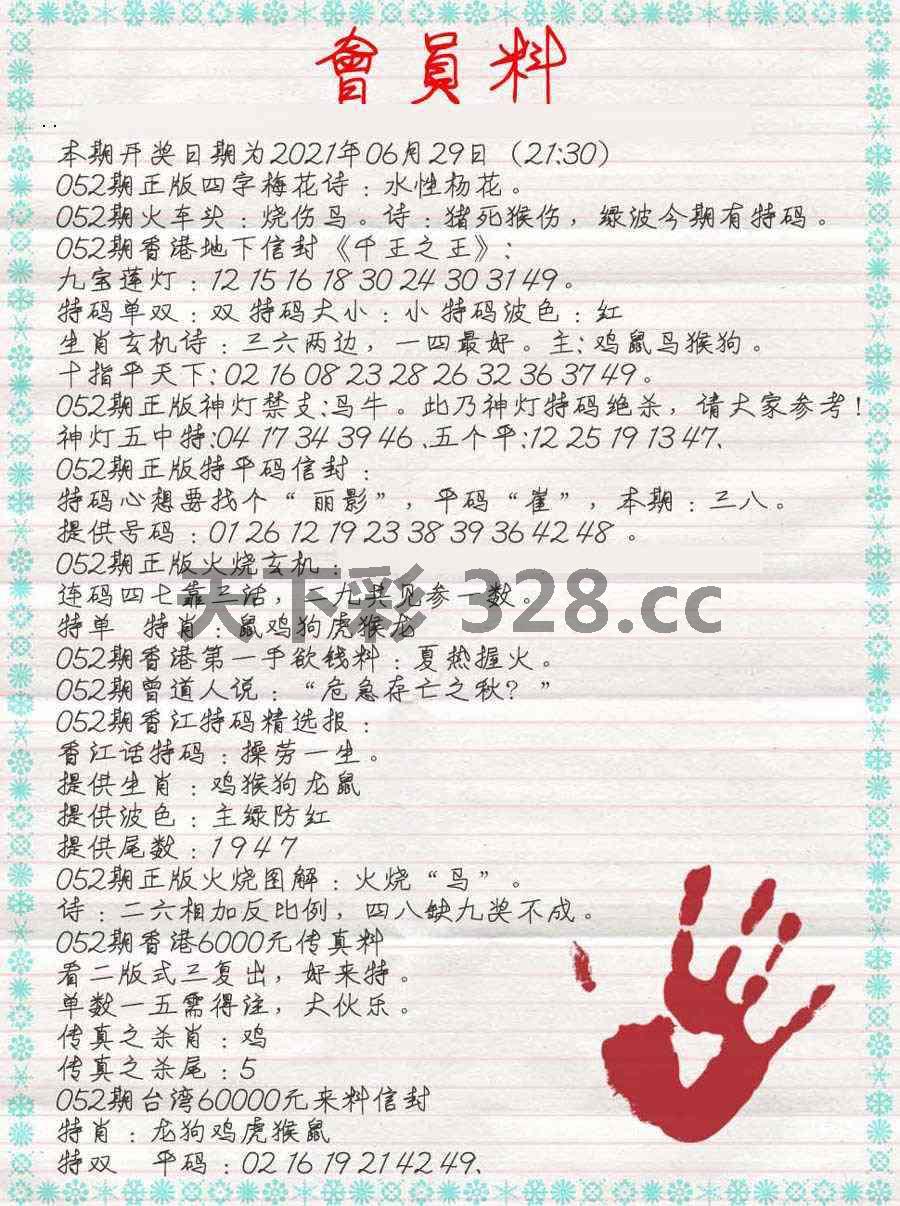 會員料
..
本期开奖日期为2021年06月29日（21:30）
052期正版四字梅花诗：水性杨花。
052期火车头：烧伤鸟。诗：猪死猴伤，绿波今期有特码。
052期香港地下信封《千王之王》:
九宝莲灯：12 15 16 18 30 24 30 31 49。
特码单双：双 特码大小：小 特码波色：红
生肖玄机诗：三六两边，一四最好。主: 鸡鼠鸟猴狗。
十指平天下: 02 16 08 23 28 26 32 36 37 49。
052期正版神灯禁支:鸟牛。此乃神灯特码绝杀，请大家参考！
神灯五中特:04 17 34 39 46、五个平:12 25 19 13 47、
052期正版特平码信封：
特码心想要找个“丽影”，平码“崔”，本期：三八。
提供号码：01 26 12 19 23 38 39 36 42 48 。
052期正版火烧玄机：
连码四七靠三活，二九共见参一数。
天下彩 328.cc
特单 特肖：鼠鸡狗虎猴龙
052期香港第一手欲钱料：夏热握火。
052期曾道人说：“危急存亡之秋？”
052期香江特码精选报：
香江话特码：操劳一生。
提供生肖：鸡猴狗龙鼠
提供波色：主绿防红
提供尾数：1 9 4 7
052期正版火烧图解：火烧“鸟”。
诗：二六相加反比例，四八缺九奖不成。
052期香港6000元传真料
看二版式三复出，好来特。
单数一五需得注，大伙乐。
传真之杀肖：鸡
传真之杀尾：5
052期台湾60000元来料信封
特肖：龙狗鸡虎猴鼠
特双 平码：02 16 19 21 42 49、